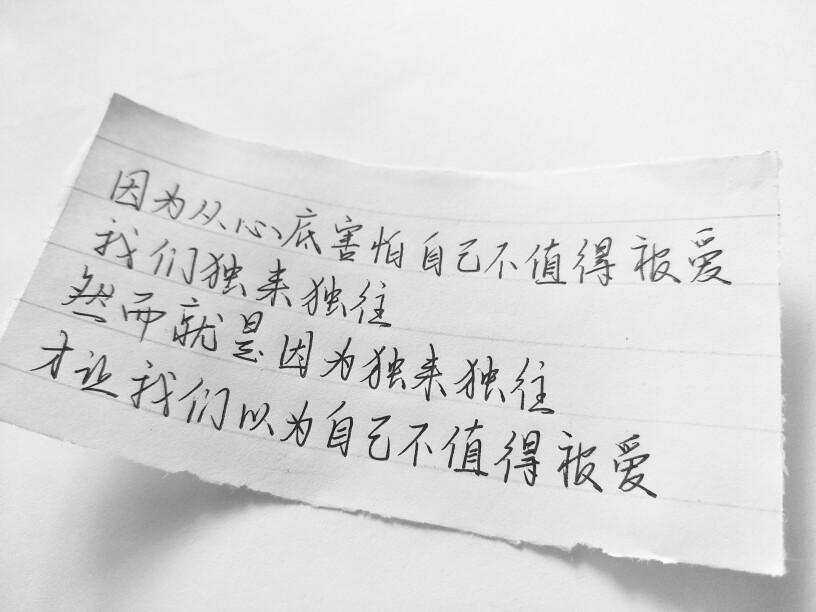 因为从心底害怕自己不值得被爱
我们独来独往
然而就是因为独来独往
才让我们以为自己不值得被爱